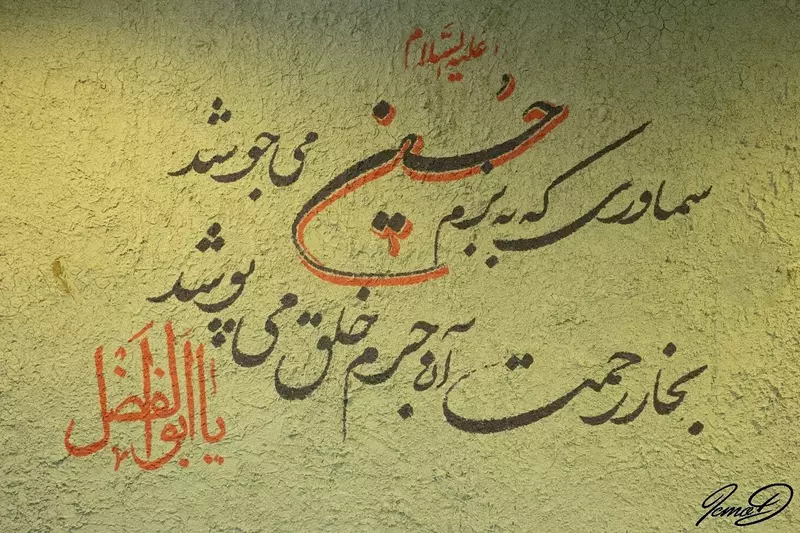 علیه السلام
سماوری که به بزم حُسین می جوشد
بخار رحمت آن جرم خلق می پوشد
یا ابوالفضل